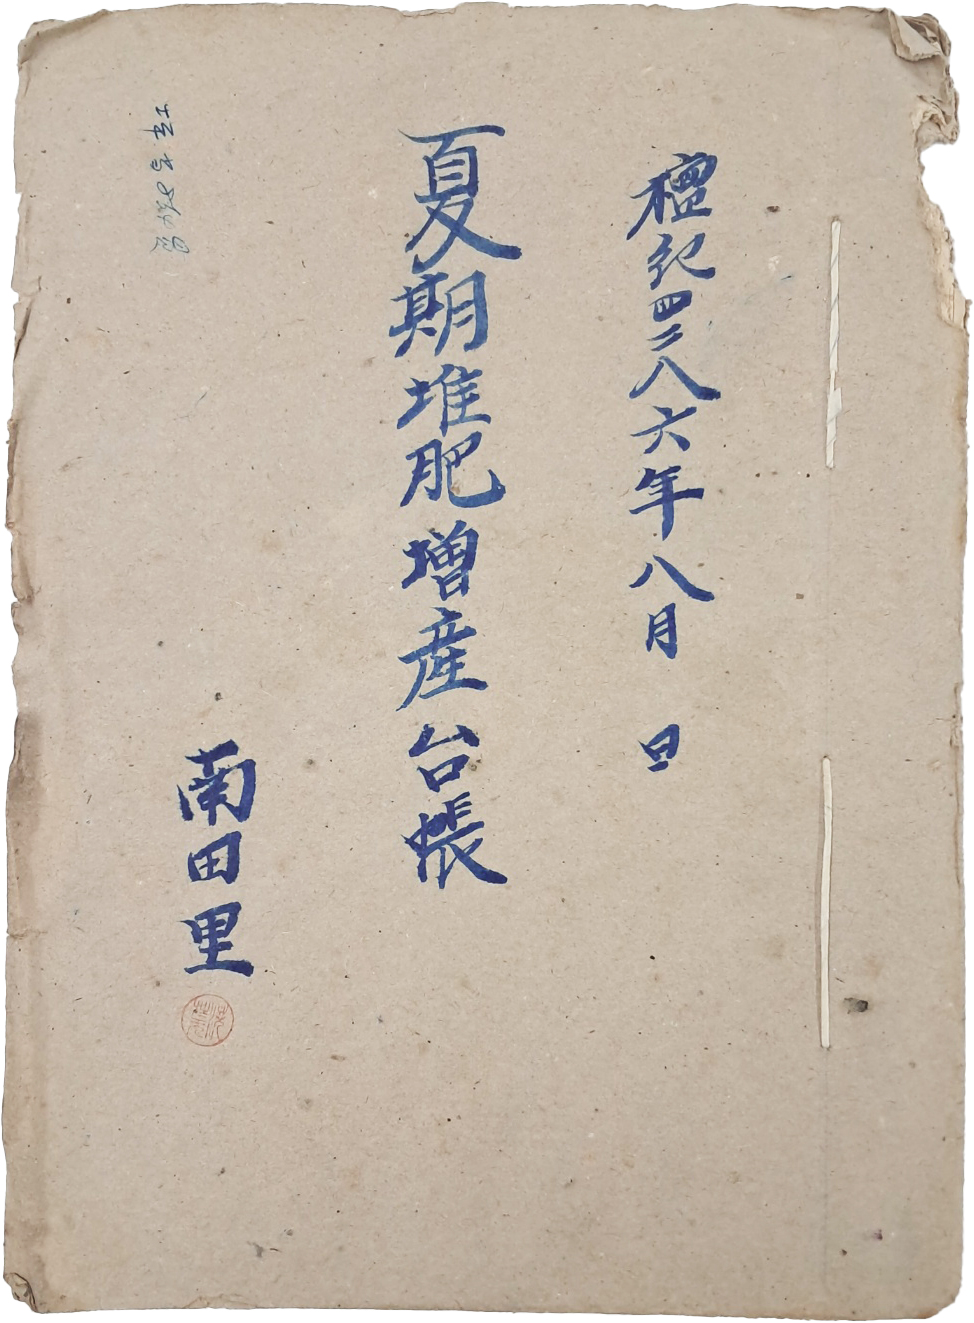 檀紀四二八六年八月 日
夏期堆肥増産台帳
南田里